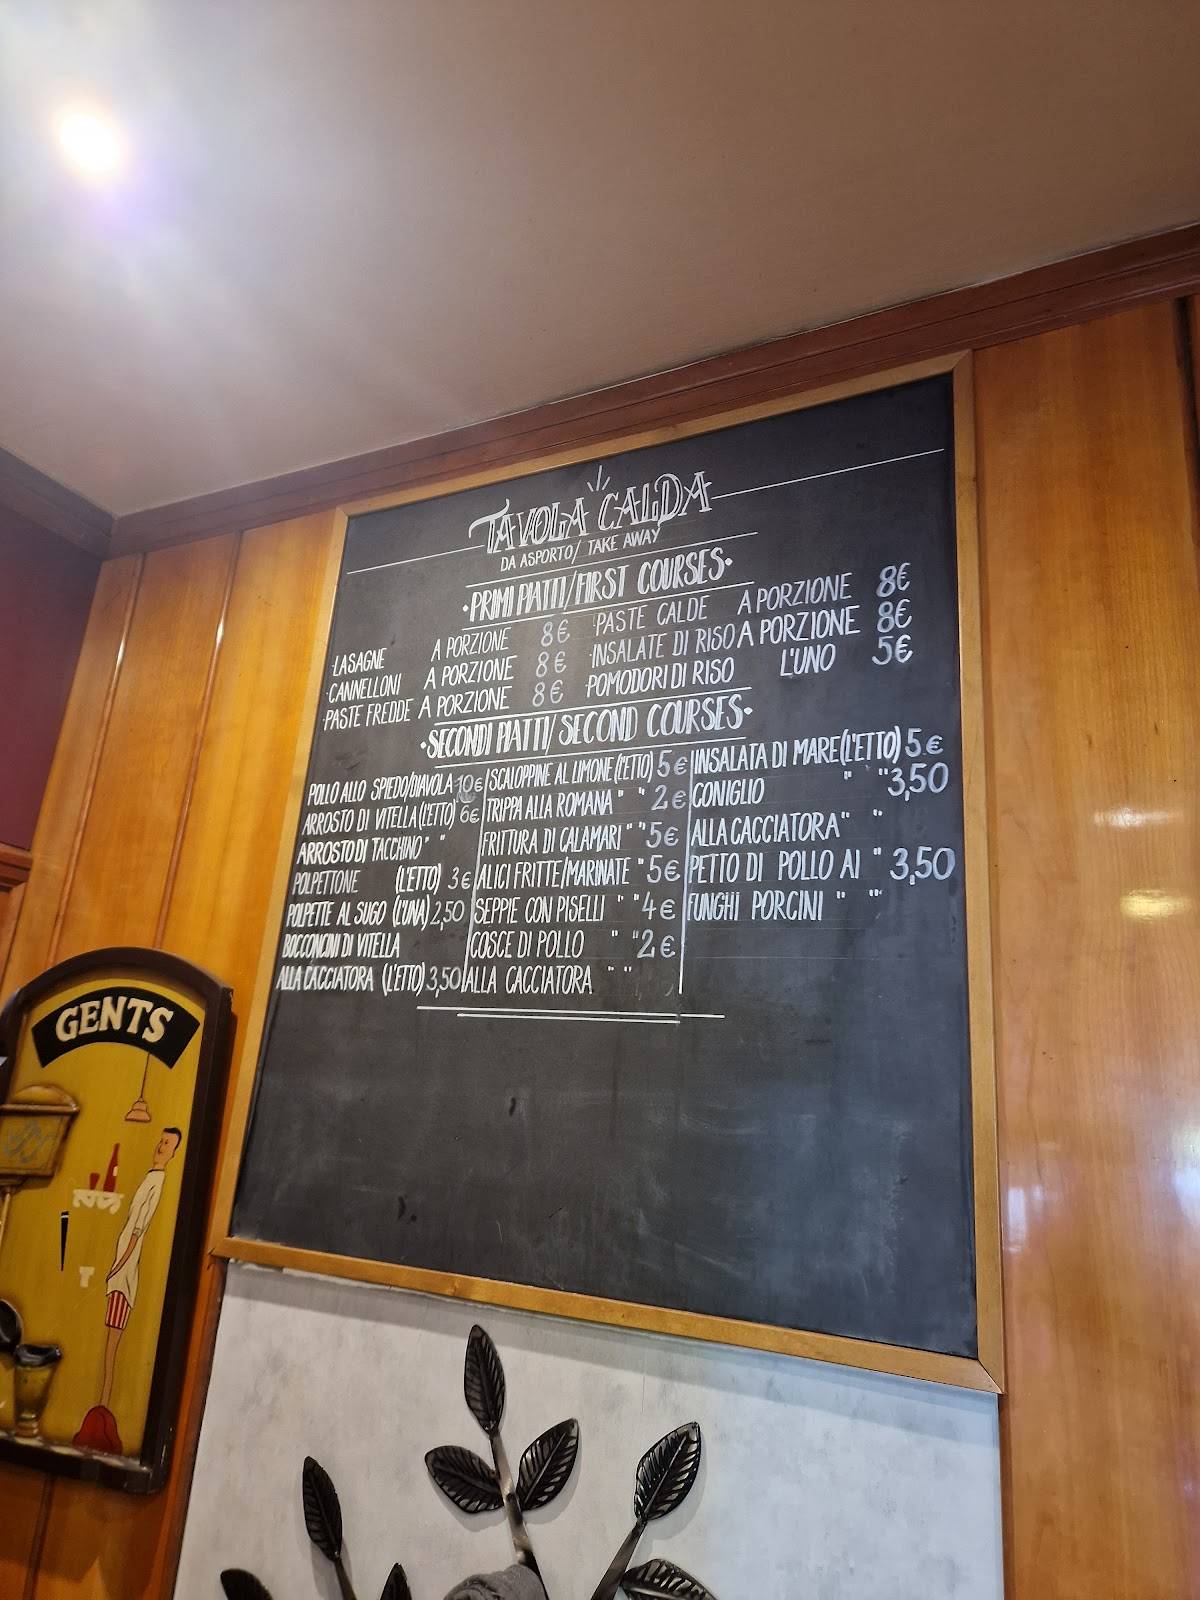 TAVOLA CALDA
DA ASPORTO/ TAKE AWAY
·PRIMI PIATTI/FIRST COURSES·
·LASAGNE A PORZIONE 8€
·CANNELLONI A PORZIONE 8€
·PASTE FREDDE A PORZIONE 8€
·PASTE CALDE A PORZIONE 8€
·INSALATE DI RISO A PORZIONE 8€
·POMODORI DI RISO L'UNO 5€
·SECONDI PIATTI/SECOND COURSES·
POLLO ALLO SPIEDO/DIAVOLA 10€
ARROSTO DI VITELLA (L'ETTO) 6€
ARROSTO DI TACCHINO " "
POLPETTONE (L'ETTO) 3€
POLPETTE AL SUGO (L'UNA) 2,50
BOCCONCINI DI VITELLA
ALLA CACCIATORA (L'ETTO) 3,50
SCALOPPINE AL LIMONE (L'ETTO) 5€
TRIPPA ALLA ROMANA " " 2€
FRITTURA DI CALAMARI " " 5€
ALICI FRITTE/MARINATE " 5€
SEPPIE CON PISELLI " " 4€
COSCE DI POLLO " " 2€
ALLA CACCIATORA " "
INSALATA DI MARE (L'ETTO) 5€
CONIGLIO " " 3,50
ALLA CACCIATORA " "
PETTO DI POLLO AI " 3,50
FUNGHI PORCINI " "
GENTS